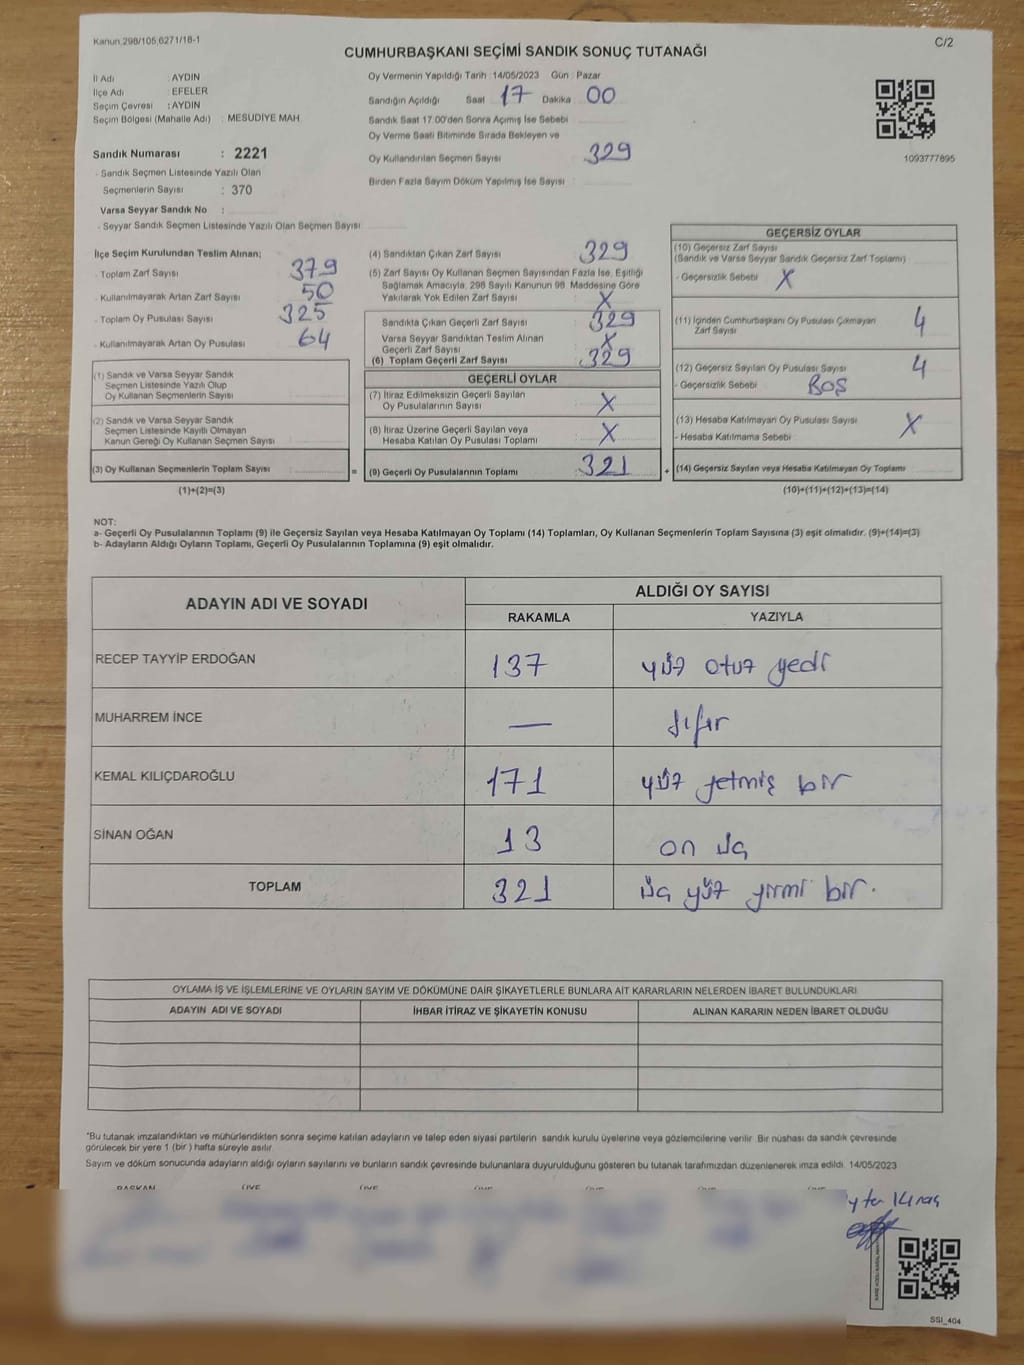 Kanun.298/105,6271/18-1
C/2
CUMHURBAŞKANI SEÇİMİ SANDIK SONUÇ TUTANAĞI
İl Adı : AYDIN
İlçe Adı : EFELER
Seçim Çevresi : AYDIN
Seçim Bölgesi (Mahalle Adı) : MESUDİYE MAH.
Sandık Numarası : 2221
- Sandık Seçmen Listesinde Yazılı Olan
Seçmenlerin Sayısı : 370
Varsa Seyyar Sandık No :
- Seyyar Sandık Seçmen Listesinde Yazılı Olan Seçmen Sayısı
Oy Vermenin Yapıldığı Tarih : 14/05/2023 Gün : Pazar
Sandığın Açıldığı Saat 17 Dakika 00
Sandık Saat 17:00'den Sonra Açımış İse Sebebi
Oy Verme Saati Bitiminde Sırada Bekleyen ve
Oy Kullandırılan Seçmen Sayısı : 329
Birden Fazla Sayım Döküm Yapılmış İse Sayısı :
1093777895
İlçe Seçim Kurulundan Teslim Alınan;
- Toplam Zarf Sayısı 379
- Kullanılmayarak Artan Zarf Sayısı 50
- Toplam Oy Pusulası Sayısı 325
- Kullanılmayarak Artan Oy Pusulası 64
(1) Sandık ve Varsa Seyyar Sandık
Seçmen Listesinde Yazılı Olup
Oy Kullanan Seçmenlerin Sayısı
(2) Sandık ve Varsa Seyyar Sandık
Seçmen Listesinde Kayıtlı Olmayan
Kanun Gereği Oy Kullanan Seçmen Sayısı
(3) Oy Kullanan Seçmenlerin Toplam Sayısı
(1)+(2)=(3)
(4) Sandıktan Çıkan Zarf Sayısı 329
(5) Zarf Sayısı Oy Kullanan Seçmen Sayısından Fazla İse, Eşitliği
Sağlamak Amacıyla, 298 Sayılı Kanunun 98. Maddesine Göre
Yakılarak Yok Edilen Zarf Sayısı X
Sandıkta Çıkan Geçerli Zarf Sayısı : 329
Varsa Seyyar Sandıktan Teslim Alınan
Geçerli Zarf Sayısı : X
(6) Toplam Geçerli Zarf Sayısı : 329
GEÇERLİ OYLAR
(7) İtiraz Edilmeksizin Geçerli Sayılan
Oy Pusulalarının Sayısı : X
(8) İtiraz Üzerine Geçerli Sayılan veya
Hesaba Katılan Oy Pusulası Toplamı : X
= (9) Geçerli Oy Pusulalarının Toplamı : 321 +
GEÇERSİZ OYLAR
(10) Geçersiz Zarf Sayısı
(Sandık ve Varsa Seyyar Sandık Geçersiz Zarf Toplamı)
- Geçersizlik Sebebi : X
(11) İçinden Cumhurbaşkanı Oy Pusulası Çıkmayan
Zarf Sayısı 4
(12) Geçersiz Sayılan Oy Pusulası Sayısı : 4
- Geçersizlik Sebebi : BOŞ
(13) Hesaba Katılmayan Oy Pusulası Sayısı : X
- Hesaba Katılmama Sebebi :
(14) Geçersiz Sayılan veya Hesaba Katılmayan Oy Toplamı
(10)+(11)+(12)+(13)=(14)
NOT:
a- Geçerli Oy Pusulalarının Toplamı (9) ile Geçersiz Sayılan veya Hesaba Katılmayan Oy Toplamı (14) Toplamları, Oy Kullanan Seçmenlerin Toplam Sayısına (3) eşit olmalıdır. (9)+(14)=(3)
b- Adayların Aldığı Oyların Toplamı, Geçerli Oy Pusulalarının Toplamına (9) eşit olmalıdır.
ADAYIN ADI VE SOYADI
ALDIĞI OY SAYISI
RAKAMLA YAZIYLA
RECEP TAYYİP ERDOĞAN 137 yüz otuz yedi
MUHARREM İNCE — sıfır
KEMAL KILIÇDAROĞLU 171 yüz yetmiş bir
SİNAN OĞAN 13 on üç
TOPLAM 321 üç yüz yirmi bir.
OYLAMA İŞ VE İŞLEMLERİNE VE OYLARIN SAYIM VE DÖKÜMÜNE DAİR ŞİKAYETLERLE BUNLARA AİT KARARLARIN NELERDEN İBARET BULUNDUKLARI
ADAYIN ADI VE SOYADI İHBAR İTİRAZ VE ŞİKAYETİN KONUSU ALINAN KARARIN NEDEN İBARET OLDUĞU
*Bu tutanak imzalandıktan ve mühürlendikten sonra seçime katılan adayların ve talep eden siyasi partilerin sandık kurulu üyelerine veya gözlemcilerine verilir. Bir nüshası da sandık çevresinde
görülecek bir yere 1 (bir) hafta süreyle asılır.
Sayım ve döküm sonucunda adayların aldığı oyların sayılarını ve bunların sandık çevresinde bulunanlara duyurulduğunu gösteren bu tutanak tarafımızdan düzenlenerek imza edildi. 14/05/2023
BAŞKAN ÜYE ÜYE ÜYE ÜYE ÜYE ÜYE
SSI_404